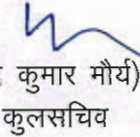 कुमार मौर्य)
कुलसचिव